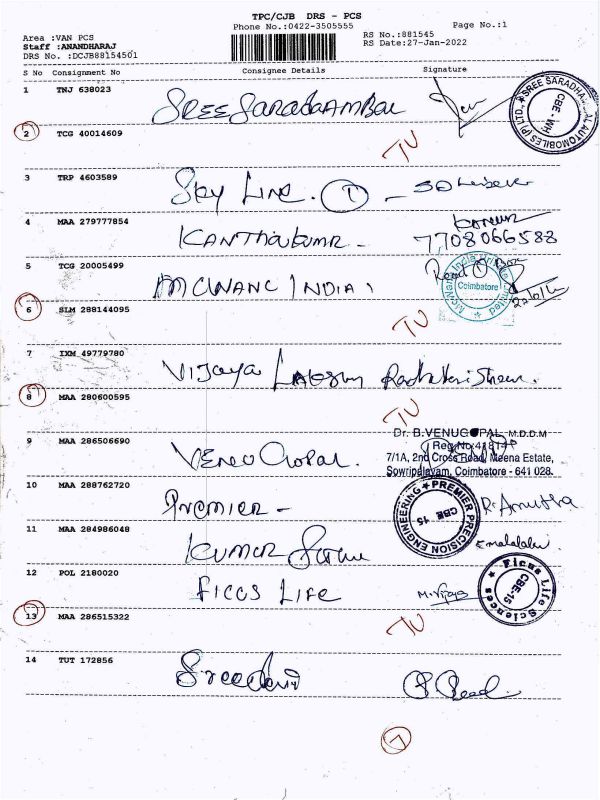 TPC/CJB DRS - PCS
Phone No.:0422-3505555
Page No.:1
Area :VAN PCS
RS No.:881545
Staff :ANANDHARAJ
RS Date:27-Jan-2022
DRS No. :DCJB88154501
S No Consignment No Consignee Details Signature
1 TNJ 638023 SREE SaradaAMBAL
SREE SARADHAMBAL AUTOMOBILES (P) LTD. CBE
2 TCG 40014609 TU
3 TRP 4603589 Sky Line. 1 -
4 MAA 279777854 KANTHakumar - 7708066588
5 TCG 20005499 INDIA
Coimbatore
6 SLM 288144095 TU
7 IXM 49779780 Vijaya
8 MAA 280600595 TU
Dr. B.VENUGOPAL, M.D.D.M
9 MAA 286506690 Venu Gopal.
7/1A, 2nd Cross Road, Meena Estate,
Sowripalayam, Coimbatore - 641 028.
10 MAA 288762720 Premier -
PREMIER PRECISION ENGINEERING CBE 15
11 MAA 284986048 Kumar
12 POL 2180020 FICUS LIFE M. Vijaya
Ficus Life Sciences CBE-15
13 MAA 286515322 TU
14 TUT 172856 Sreedevi